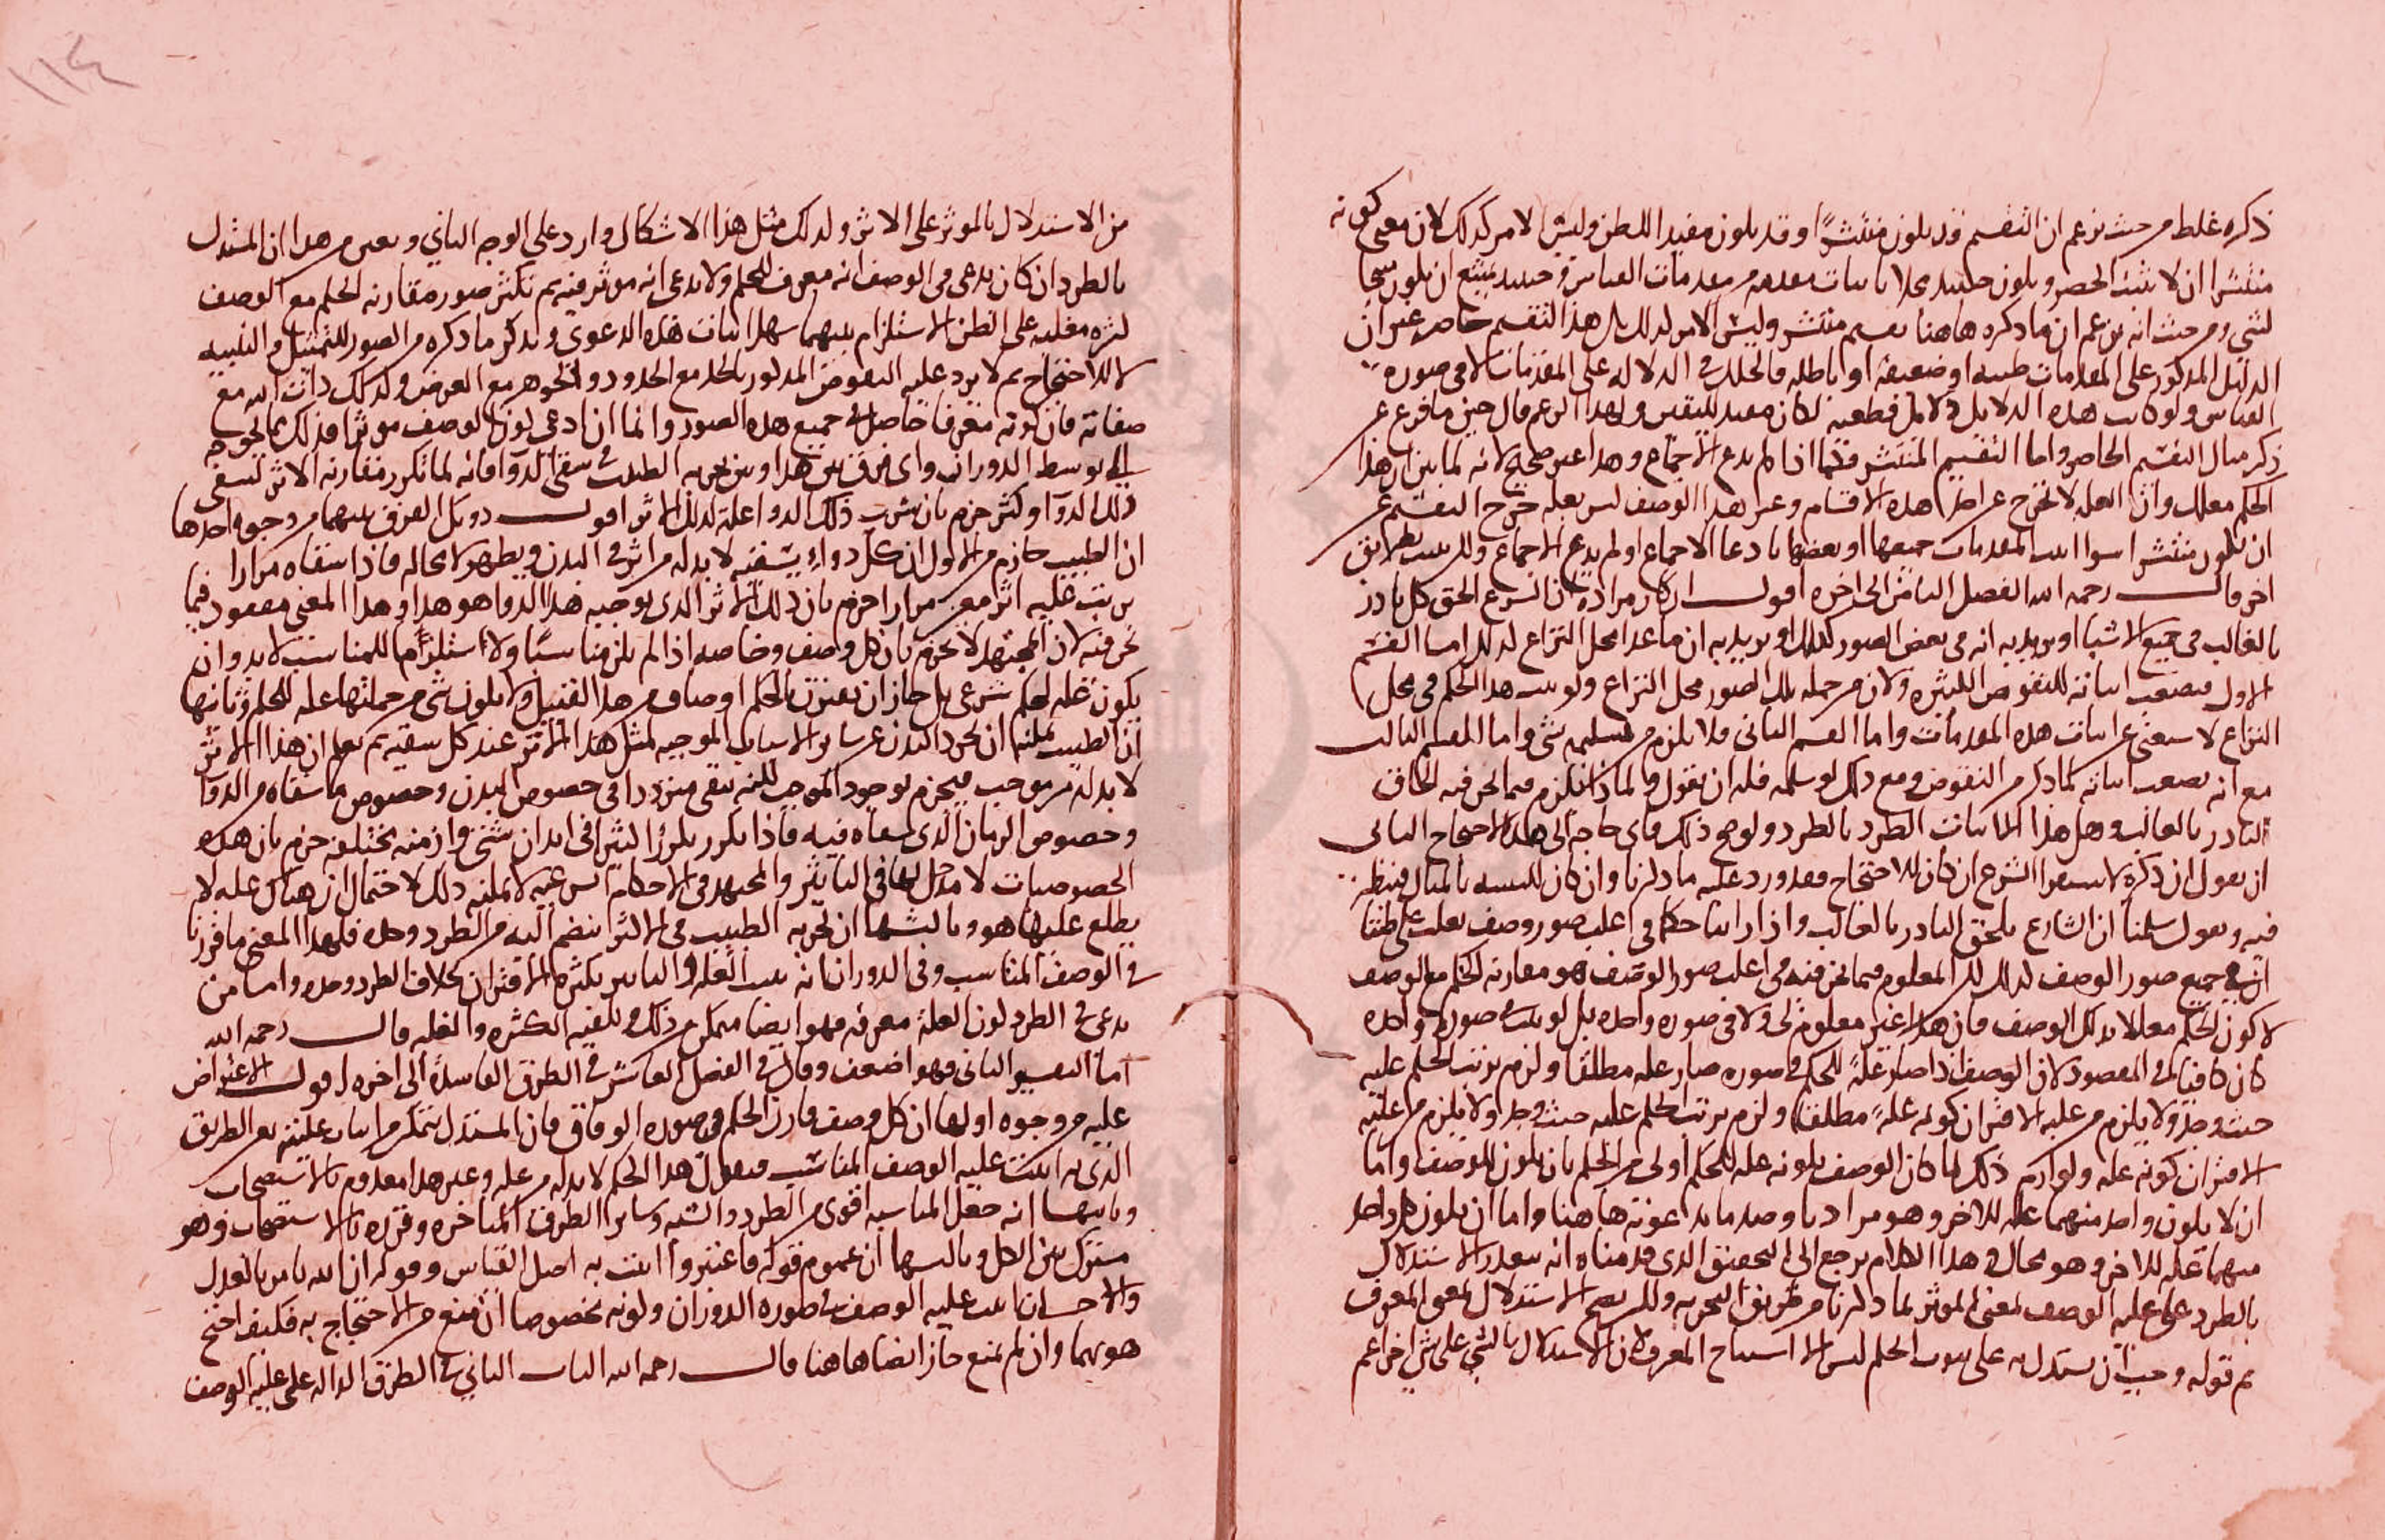 ذكره غلط من حيث يزعم ان التقسيم قد يكون منتشرًا وقد يكون مفيدا للظن وليس الامر كذلك لان معنى كونه
منتشرا ان لا يثبت الحصر ويكون حينئذ مخلا باثبات مقدمه من مقدمات القياس وحينئذ يمتنع ان يكون منتجا
لشي ومن حيث انه يزعم ان ما ذكره هاهنا تقسيم منتشر وليس الامر لذلك بل هذا التقسيم حاصر غير ان
الدليل المذكور على المقدمات ظنيه او ضعيفة او باطله فالخلل في الدلاله على المقدمات لا في صورة
القياس ولو كانت هذه الدلايل دلايل قطعيه لكان مفيد لليقين ولهذا الوعم قال حين ما فرغ عن
ذكر مثال التقسيم الحاصر واما التقسيم المنتشر فكما اذا لم يدع الاجماع وهذا غير صحيح لانه لما بين ان هذا
الحكم معلل وان العله لا تخرج عن احد هذه الاقسام وغير هذا الوصف ليس بعله خرج التقسيم عن
ان يكون منتشرا سوا اثبت المقدمات جميعها او بعضها بادعا الاجماع او لم يدع الاجماع ولكن يثبت بطريق
اخر قال رحمه الله الفصل الثامن الى اخره اقول ان كان مراده ان الشرع الحق كل نادر
بالغالب في جميع الاشيا او يريد به انه في بعض الصور كذلك او يريد به ان ما عدا محل النزاع لذلك اما القسم
الاول فيصعب اثباته للنقوض الكثيره ولان من جمله تلك الصور محل النزاع ولو ثبت هذا الحكم في محل
النزاع لاستغنى عن اثبات هذه المقدمات واما القسم الثاني فلا يلزم من تسليمه شي واما القسم الثالث
مع انه يصعب اثباته لما ذكر من النقوض ومع ذلك لو سلمه فله ان يقول ولماذا يلزم فيما نحن فيه الحاق
النادر بالغالب وهل هذا الا اثبات الطرد بالطرد ولو صح ذلك فاي حاجة الى هذا الاحتجاج الثاني
ان يقول ان ذكره لاستقرا الشرع ان كان للاحتجاج فقد ورد عليه ما ذكرنا وان كان للتنبيه بالمثال فينظر
فيه ويقول سلمنا ان الشارع يلحق النادر بالغالب واذا راينا حكما في اغلب صور وصف يغلب على ظننا
انه في جميع صور الوصف لذلك لكن المعلوم فيما نحن فيه في اغلب صور الوصف هو مقارنه الحكم مع الوصف
لا كون الحكم معللا بذلك الوصف فان هذا غير معلوم لي ولا في صوره واحده بل لو ثبت في صوره واحده
كان كافيا في المقصود لان الوصف اذا صار علةً للحكم في صوره صار عله مطلقا ولزم ترتب الحكم عليه
حيث وجد ولا يلزم من عليه الاقتران كونه علةً مطلقا ولزم ترتب الحكم عليه حيث وجد ولا يلزم من عليه
الاقتران كونه عله ولو لزم ذلك لما كان الوصف بكونه عله للحكم اولى من الحكم بان يكون للوصف واما
ان لا يكون واحد منهما عله للاخر وهو مراد نا وضد ما يدعونه هاهنا واما ان يكون كل واحد
منهما عله للاخر وهو محال وهذا الكلام يرجع الى التحقيق الذي قدمناه انه يتعذر الاستدلال
بالطرد على عليه الوصف لمعنى المؤثر لما ذكرنا من طريق التجربه ولكن يصح الاستدلال لمعنى المعرف
ثم قوله وجب ان يستدل به على ثبوت الحكم ليس الا استنتاج المعرف لان الاستدلال بالشي على شي اخر اعم
١١٤
من الاستدلال بالموثر على الاثر ولذلك مثل هذا الاشكال وارد على الوجه الثاني ونعني من هذا ان المستدل
بالطرد ان كان يدعي في الوصف انه معرف للحكم ولا يدعي انه موثر فيه ثم تكثر صور مقارنه الحكم مع الوصف
كثره مغلبه على الظن الاستلزام بينهما سهل اثبات هذه الدعوى ويذكر ما ذكره من الصور للتمثيل والتنبيه
لا للاحتجاج ثم لا يرد عليه النقوض المذكور بالحد مع المحدود والجوهر مع العرض وكذلك ذات الله مع
صفاته فان كونه معرفا حاصل في جميع هذه الصور واما ان ادعى كون الوصف موثرا فذلك مما يحوجه
الى توسط الدوران واي فرق بين هذا وبين تجربه الطبيب في سقي الدوا فانه لما تكرر مقارنه الاثر لسقي
ذلك الدوا وكثر جزم بان شرب ذلك الدوا علة لذلك الاثر اقول ذو بل الفرق بينهما من وجوه احدها
ان الطبيب جازم من الاول ان كل دواءٍ يسقيه لا بد له من اثر في البدن ويظهر لا محاله فاذا سقاه مرارا
يرتب عليه اثر معين مرارا جزم بان ذلك الاثر الذي يوجبه هذا الدوا هو هذا وهذا المعنى مفقود فيما
نحن فيه لان المجتهد لا يجزم بان كل وصف وخاصه اذا لم يكن مناسبًا ولا مستلزما للمناسب لا بد وان
يكون علة لحكم شرعي بل جاز ان يقترن بالحكم اوصاف من هذا القبيل ولا يكون شي من جملتها عله للحكم وثانيها
ان الطبيب يمكنه ان يجرد البدن عن ساير الاسباب الموجبه لمثل هذا الاثر عند كل سقيه ثم يعلم ان هذا الاثر
لا بد له من موجب فيجزم بوجود الموجب لكنه يبقى مترددا في خصوص البدن وخصوص ما سقاه من الدوا
وخصوص الزمان الذي سقاه فيه فاذا تكرر تكررا كثيرا في ابدان شتى وازمنه مختلفه جزم بان هذه
الخصوصيات لا مدخل لها في التاثير والمجتهد في الاحكام الشرعيه لا يمكنه ذلك لاحتمال ان هناك عله لا
يطلع عليها هو وثالثها ان تجربه الطبيب في الاكثر ينضم اليه من الطرد وحده فلهذا المعنى ما قررنا
في الوصف المناسب وفي الدوران انه يثبت العله والتاثير بكثره الاقتران بخلاف الطرد وحده واما من
يدعي في الطرد كون العلة معرفه فهو ايضا ممكن من ذلك ويكفيه الكثره والغلبه قال رحمه الله
اما التفسير الثاني فهو اضعف وقال في الفصل العاشر في الطرق الفاسدة الى اخره اقول الاعتراض
عليه من وجوه اولها ان كل وصف قارن الحكم في صوره الوفاق فان المستدل يتمكن من اثبات عليته بعين الطريق
الذي به اثبتت عليه الوصف المناسب فيقول هذا الحكم لا بد له من عله وغير هذا معدوم بالاستصحاب
وثانيها انه جعل المناسبه اقوى من الطرد والشبه وساير الطرق المتاخره وقرره بالاستصحاب وهو
مشترك بين الكل وثالثها ان عموم قوله فاعتبروا اثبت به اصل القياس وقوله ان الله يامر بالعدل
والاحسان اثبت عليه الوصف في صوره الدوران وكونه مخصوصا ان منع من الاحتجاج به فكيف احتج
هو بهما وان لم يمنع جاز ايضا هاهنا قال رحمه الله الباب الثاني في الطرق الداله على عليه الوصف